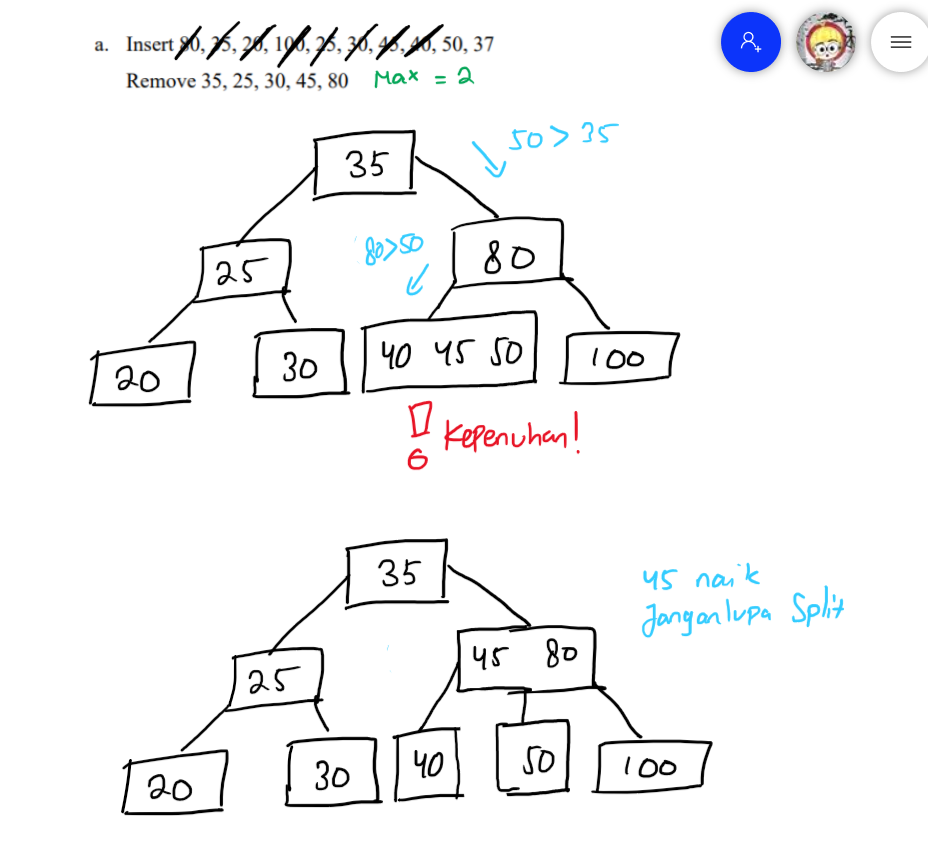 a. Insert 80, 35, 20, 100, 25, 30, 45, 40, 50, 37
Remove 35, 25, 30, 45, 80 Max = 2
50 > 35
35
80>50
80
25
20
30
40 45 50
100
Kepenuhan!
35
45 naik
Jangan lupa Split
45 80
25
20
30
40
50
100